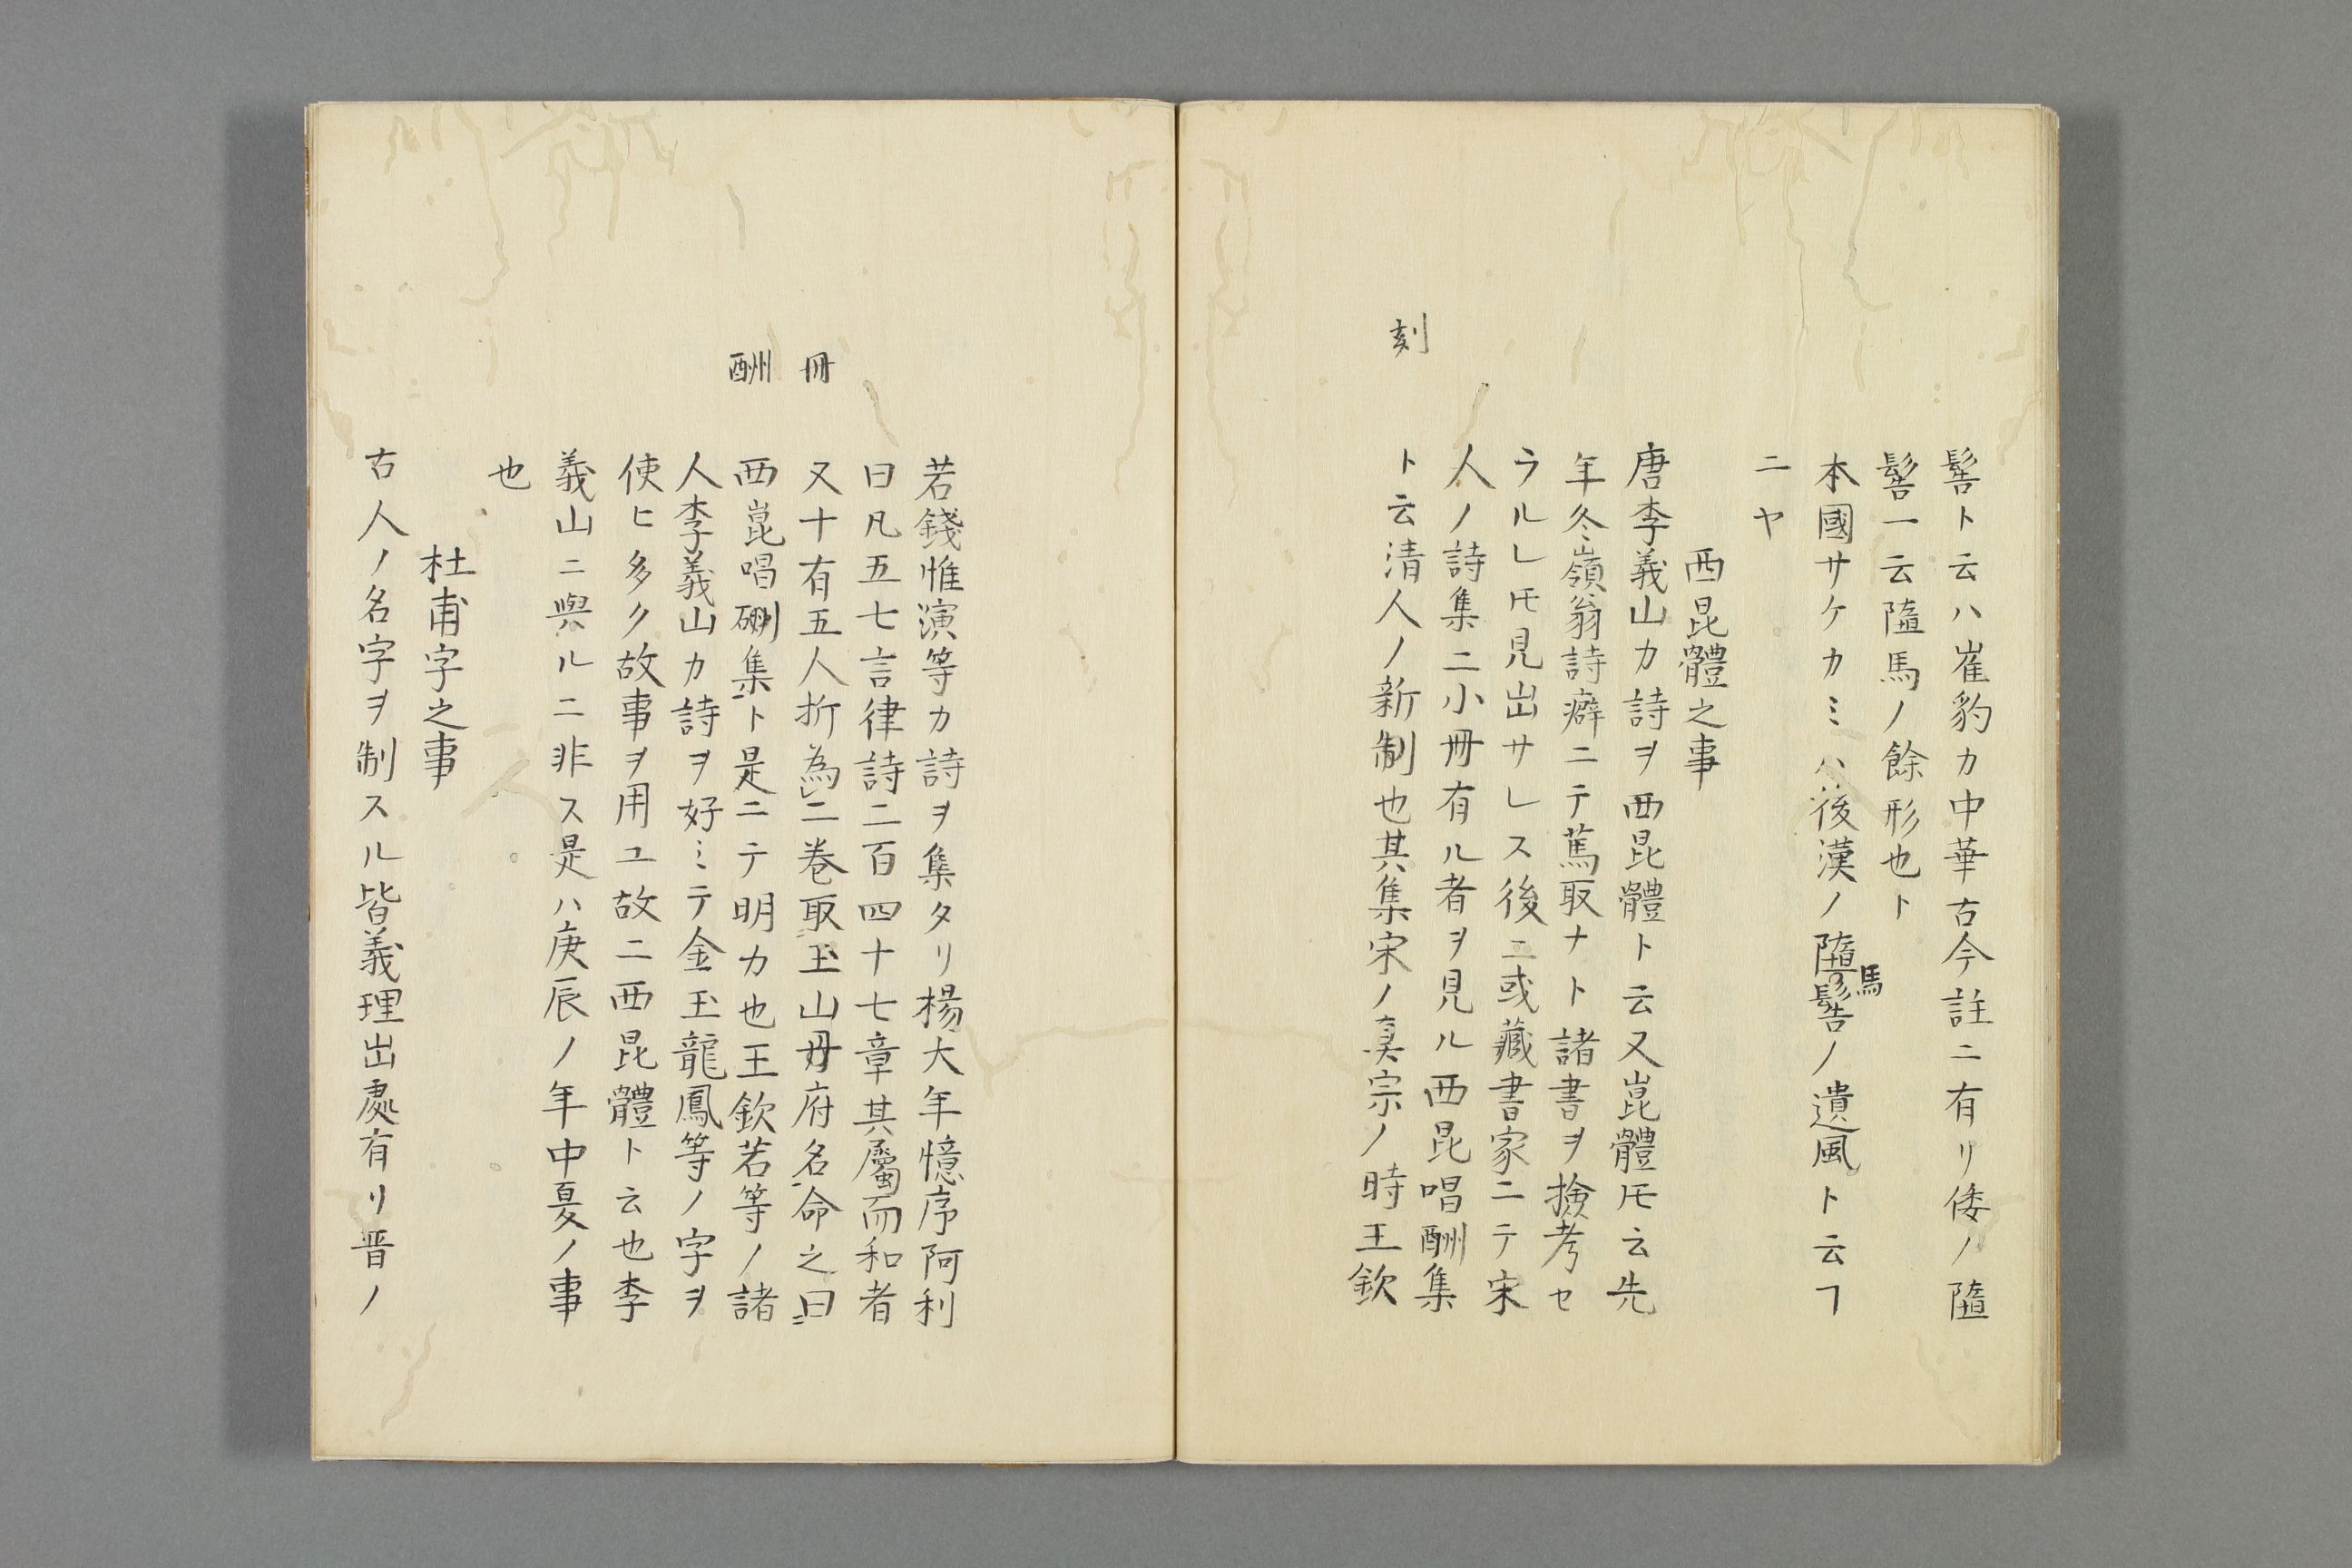 髻ト云ハ崔豹カ中華古今註ニ有リ倭ノ隨
髻一云隨馬ノ餘形也ト
本國サケカミハ後漢ノ隨馬髻ノ遺風ト云ヿ
ニヤ
西昆體之事
唐李義山カ詩ヲ西昆體ト云又崑體ﾓ云先
年冬嶺翁詩癖ニテ蔦取ナト諸書ヲ撿考セ
ラルレﾓ見出サレス後ニ或藏書家ニテ宋
人ノ詩集ニ小冊有ル者ヲ見ル西昆唱酬集
ト云清人ノ新制也其集宋ノ真宗ノ時王欽
刻
若錢惟演等カ詩ヲ集タリ楊大年憶序阿利
曰凡五七言律詩二百四十七章其屬而和者
又十有五人折為二巻取玉山册府名命之曰
西崑唱酬集ト是ニテ明カ也王欽若等ノ諸
人李義山カ詩ヲ好ミテ金玉龍鳳等ノ字ヲ
使ヒ多ク故事ヲ用ユ故ニ西昆體ト云也李
義山ニ與ルニ非ス是ハ庚辰ノ年中夏ノ事
也
冊
酬
杜甫字之事
古人ノ名字ヲ制スル皆義理出處有リ晋ノ